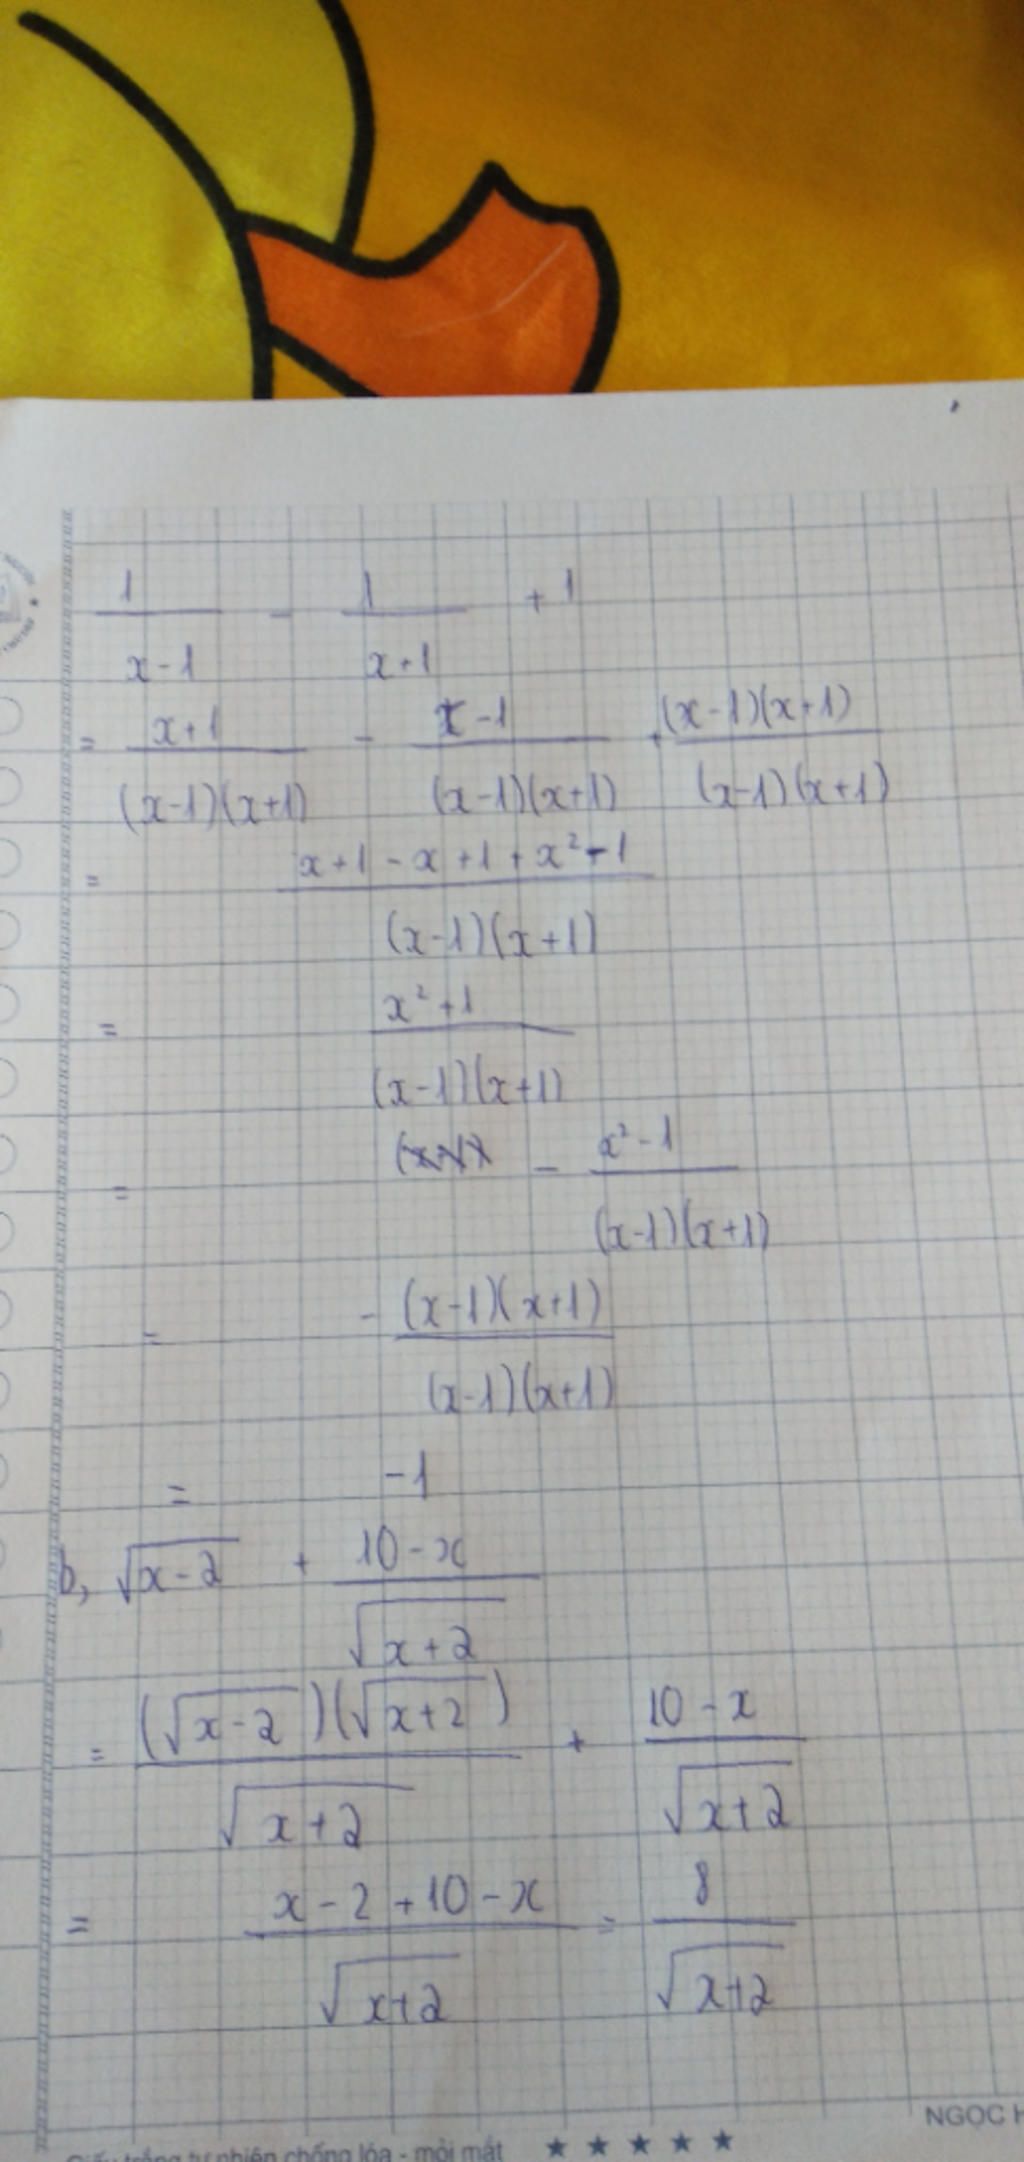 1/(x-1) - 1/(x+1) + 1
= (x+1)/((x-1)(x+1)) - (x-1)/((x-1)(x+1)) + ((x-1)(x+1))/((x-1)(x+1))
= (x+1-x+1+x²-1)/((x-1)(x+1))
= (x²+1)/((x-1)(x+1))
= - (x²-1)/((x-1)(x+1))
= - ((x-1)(x+1))/((x-1)(x+1))
= -1
b, √(x-2) + (10-x)/√(x+2)
= ((√(x-2))(√(x+2)))/√(x+2) + (10-x)/√(x+2)
= (x-2+10-x)/√(x+2) = 8/√(x+2)
NGỌC H
Giấy trắng tự nhiên chống lóa - mỏi mắt ★ ★ ★ ★ ★